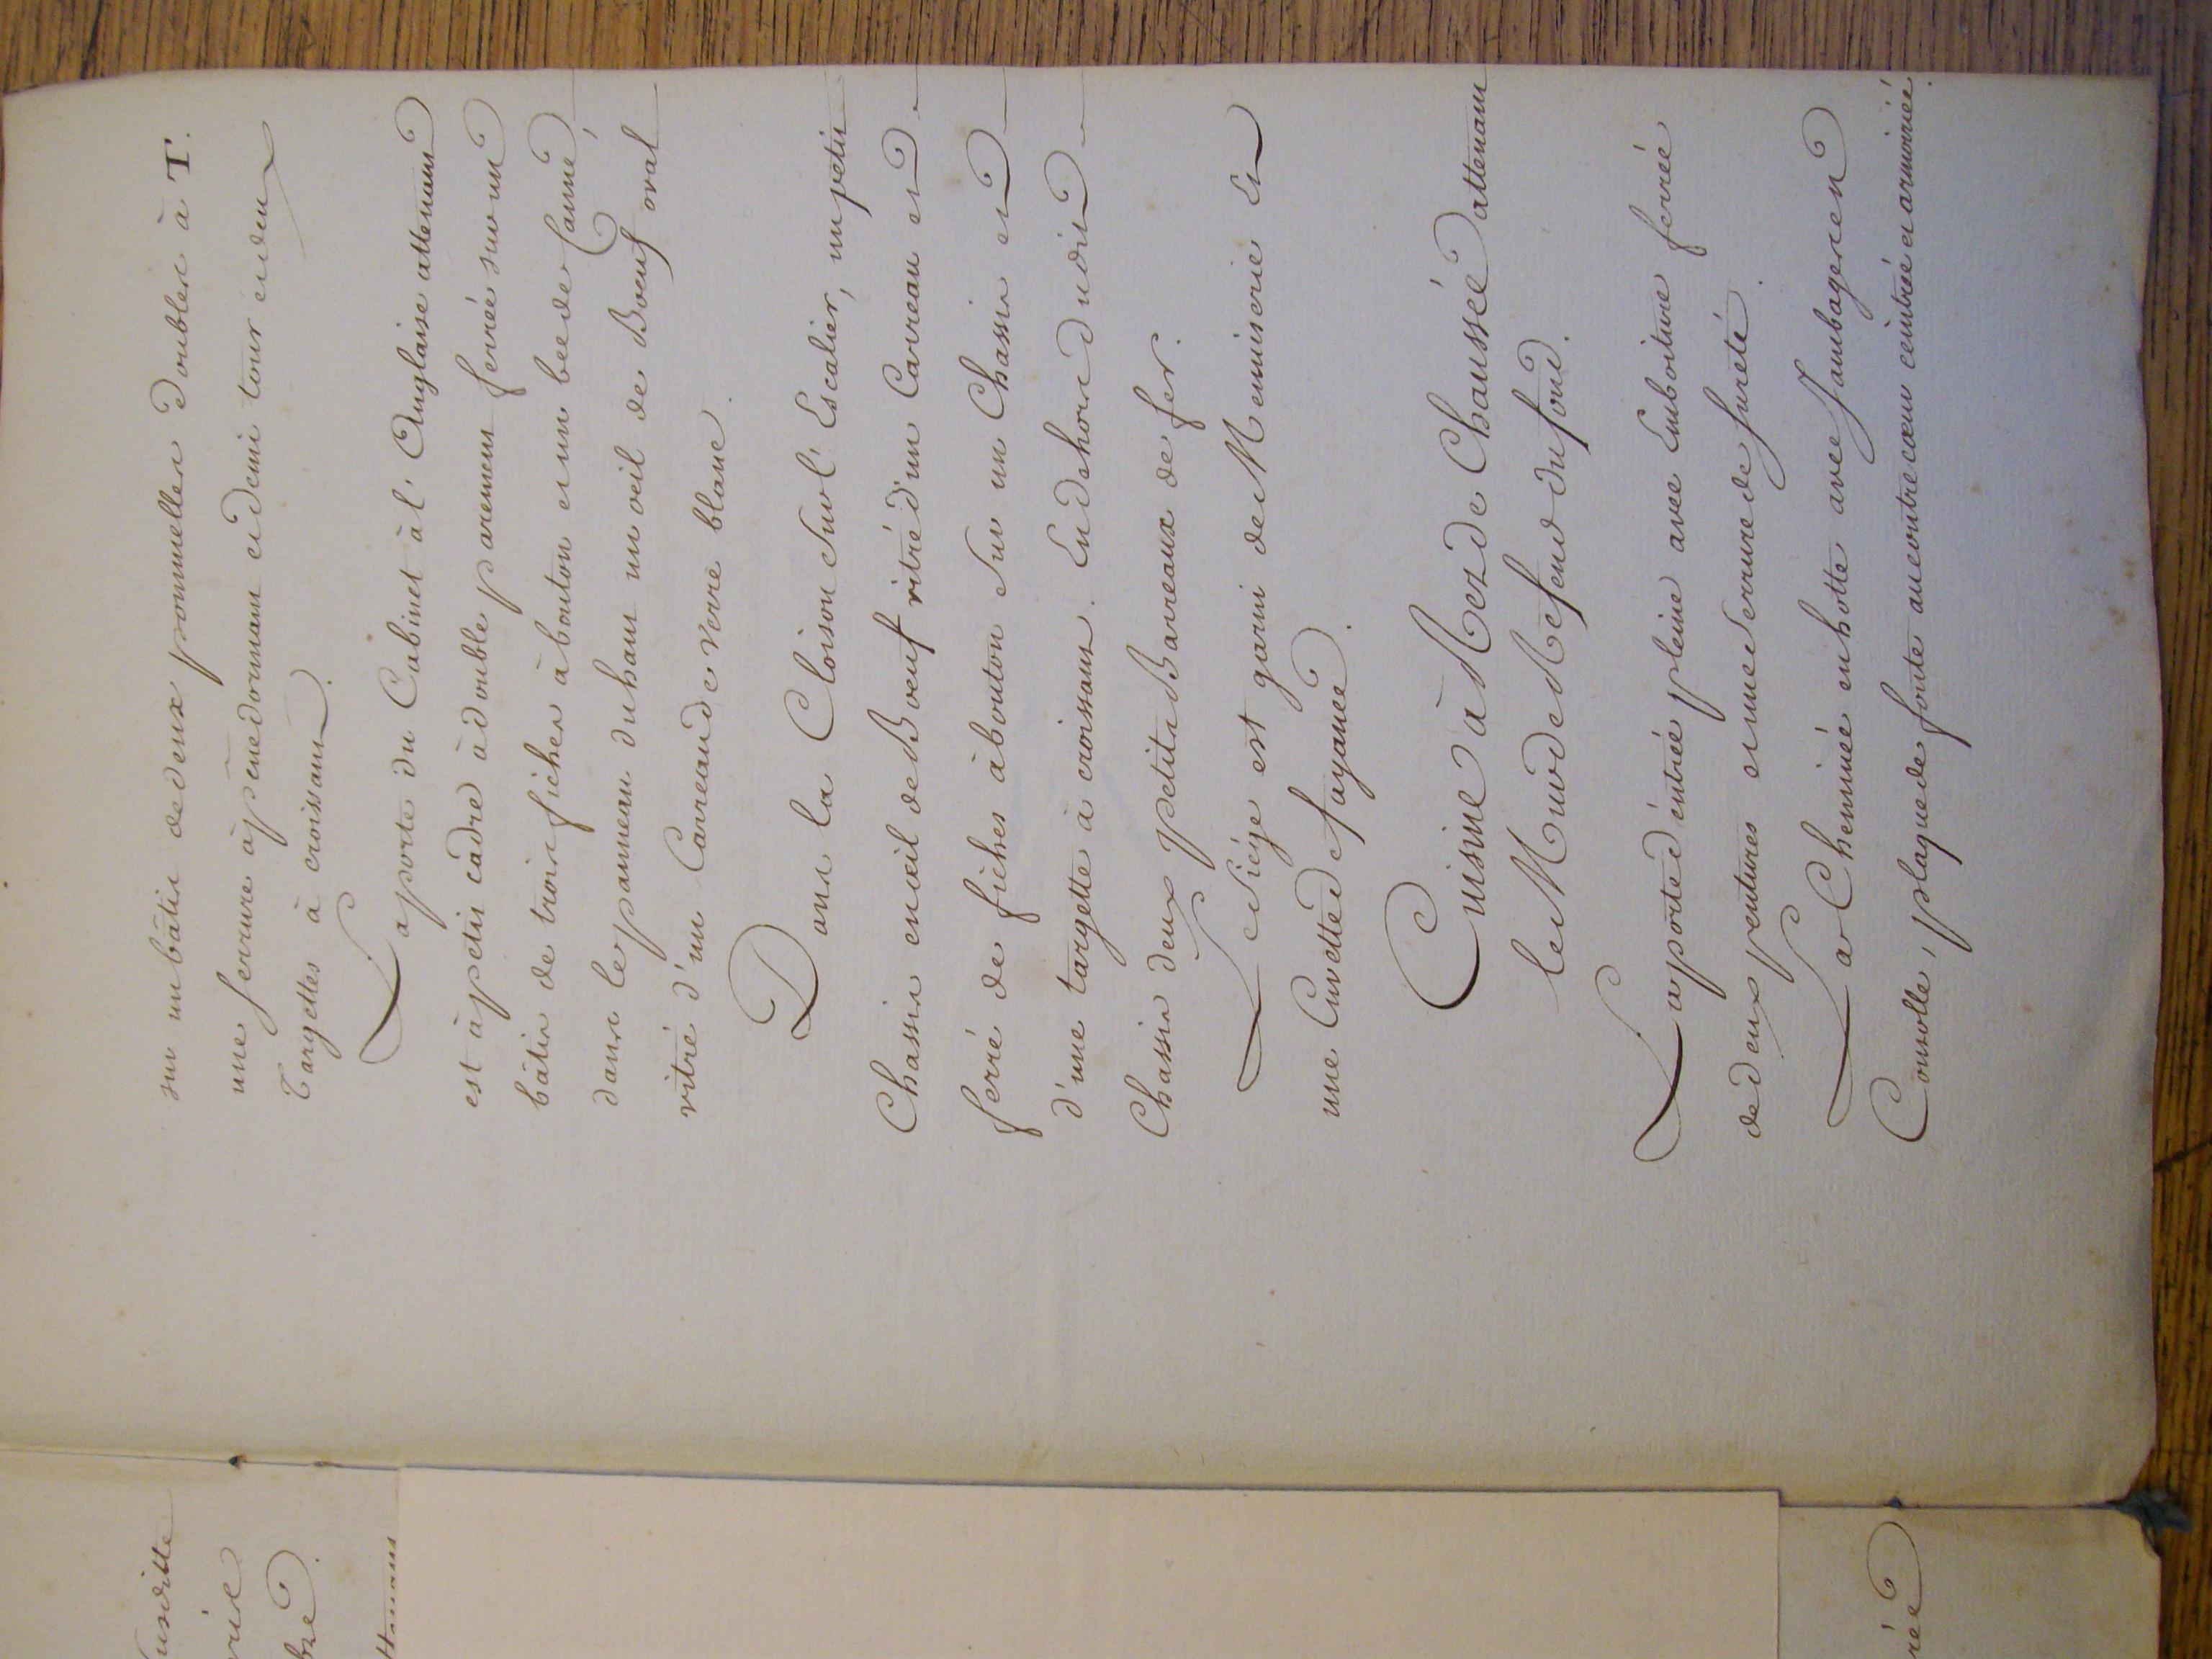 sur un bâtis de deux pommelles doubles à T.
une serrure à pêne dormant et demi tour et deux
Targettes à croissant.
La porte du Cabinet à l'Anglaise attenant
est à petit cadre à double parement ferrée sur un
bâtis de trois fiches à bouton et un bec de Canne,
dans le panneau du haut un oeil de Boeuf oval
vitré d'un Carreau de Verre blanc.
Dans la Cloison sur l'Escalier, un petit
Chassis en œil de Boeuf vitré d'un Carreau et
ferré de fiches à bouton sur un Chassis et
d'une targette à croissant. En dehors dudit
Chassis deux petits Barreaux de fer.
Le Siége est garni de Menuiserie et
une Cuvette de fayance.
Cuisine à Rez de Chaussée attenant
le Mur de Refend du fond.
La porte d'éntrée pleine avec Emboiture ferrée
de deux pentures et une Serrure de Sureté.
La Cheminée en hotte avec Jambages en
Consolle, plaque de fonte au contrecœur ceintrée et armoiriée
susditte